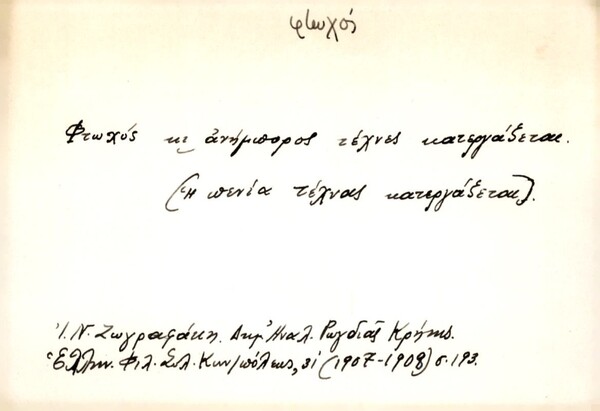 φτωχός
Φτωχός κι ἀνήμπορος τέχνες κατεργάζεται.
(Ἡ πενία τέχνας κατεργάζεται).
Ἰ. Ν. Ζωγραφάκη. Δημ. Ἀναλ. Ρωγδιᾶς Κρήτης.
Ἑλλην. Φιλ. Συλ. Κων/πόλεως, (1907-1908) σ. 193.